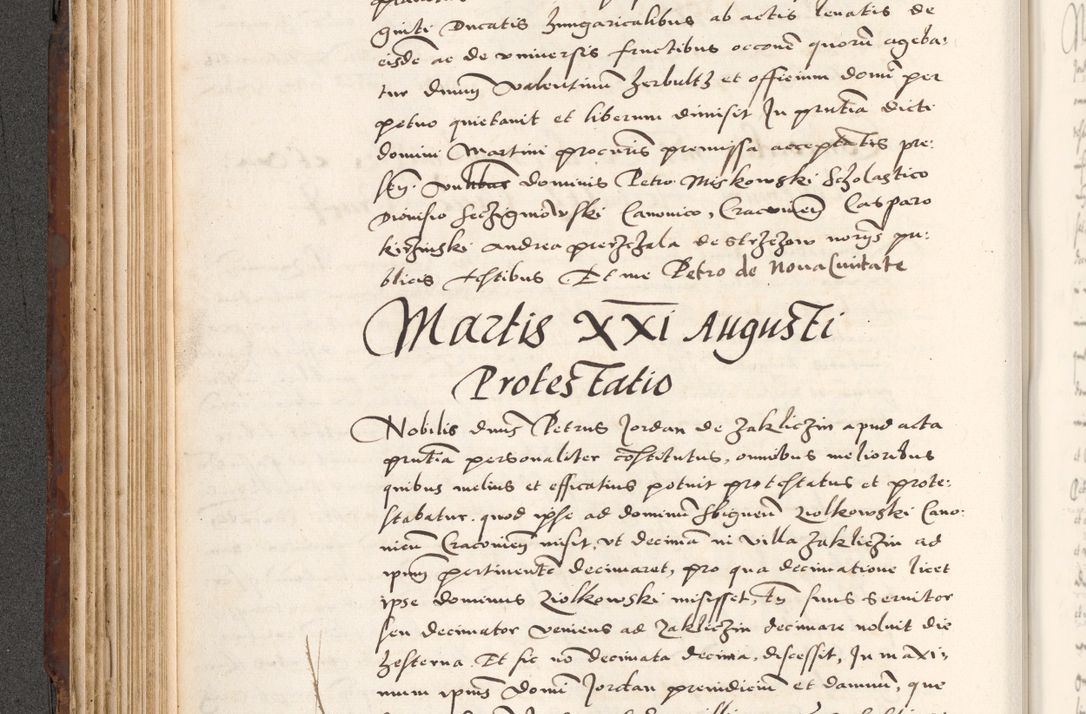 giuti Ducatis Hungaricalibus ab actis levatis de
eisdē ac de universis fructibus occonē quorū ageba-
tur dnum Valentinū Herbultz et officium domī per
petuo quietavit et liberum dimisit In pn̄tia dicti
domini Martini procuris premissa acceptātis pre-
dominis Petro Miskowski Scholastico
Dionisio Seczigniowski Canonico, Cracovieñ Casparo
Andrea pierzchala de Strzezow noriis pu-
blicis testibus Et me Petro de Nova Civitate
Martis XXI Augusti
Protestatio
Nobilis dnus Petrus Jordan de Zakliczin apud acta
pn̄tia personaliter cōstitutus, omnibus melioribus
quibus melius et efficatius potuit protestatus et prote-
stabatur quod ipse ad dominū Sbigneū Ziolkowski Cano-
nicū Cracovieñ misit, ut decimā in villa Zakliczin ad
ipsum pertinentē decimaret, pro qua decimatione licet
ipse dominus Ziolkowski misisset, tñ suus servitor
seu decimator veniens ad Zakliczin decimare noluit die
hesterna Et sic nō decimata decima, discessit, In maxi-
mum ipius Domī Jordan preiudiciū et damnū, que